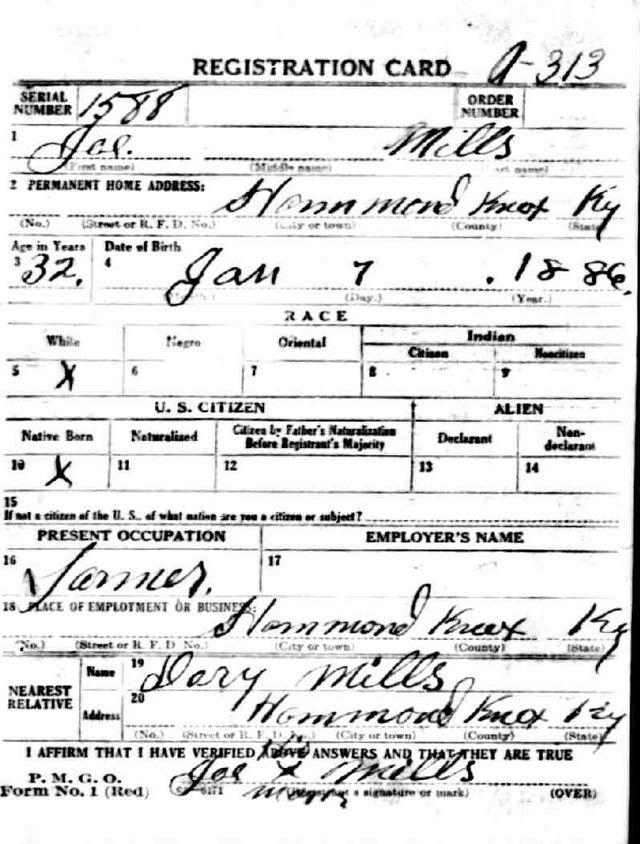 REGISTRATION CARD A-313
SERIAL NUMBER 1588 ORDER NUMBER
1 Joe. Mills
(First name) (Middle name) (Last name)
2 PERMANENT HOME ADDRESS: Hammond Knox Ky
(No.) (Street or R. F. D. No.) (City or town) (County) (State)
Age in Years Date of Birth
3 32. 4 Jan 7 . 1886.
(Month.) (Day.) (Year.)
RACE
White Negro Oriental Indian
Citizen Noncitizen
5 X 6 7 8 9
U. S. CITIZEN ALIEN
Native Born Naturalized Citizen by Father's Naturalization Before Registrant's Majority Declarant Non-declarant
10 X 11 12 13 14
15
If not a citizen of the U. S., of what nation are you a citizen or subject?
PRESENT OCCUPATION EMPLOYER'S NAME
16 Farmer. 17
18 PLACE OF EMPLOYMENT OR BUSINESS:
Hammond Knox Ky
(No.) (Street or R. F. D. No.) (City or town) (County) (State)
NEAREST RELATIVE Name 19 Dary Mills
Address 20 Hammond Knox Ky
(No.) (Street or R. F. D. No.) (City or town) (County) (State)
I AFFIRM THAT I HAVE VERIFIED ABOVE ANSWERS AND THAT THEY ARE TRUE
P. M. G. O. Joe X Mills
Form No. 1 (Red) mark signature or mark) (OVER)